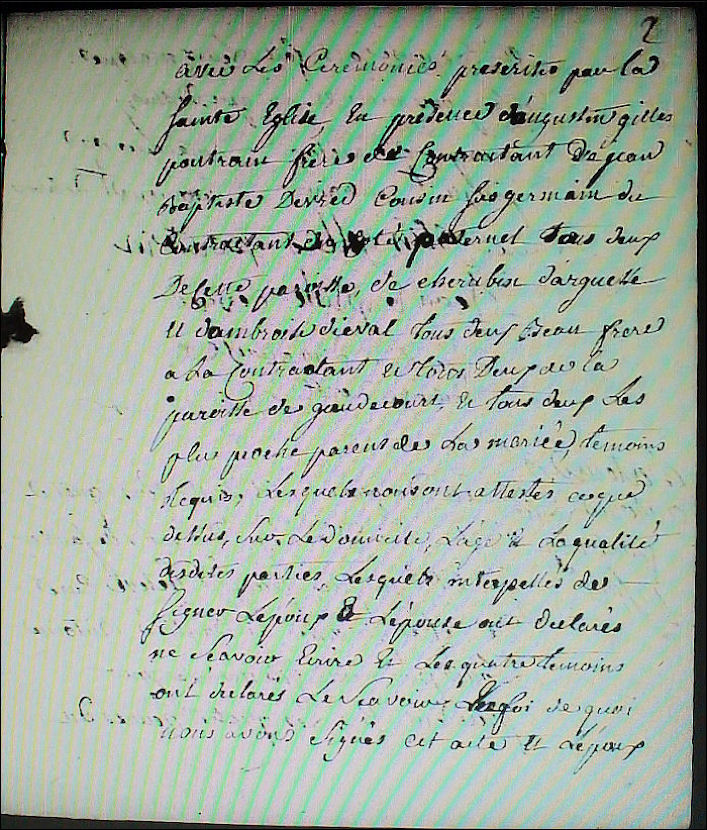 2
avec Les Ceremonies prescrites par la
Sainte Eglise, En presence d'augustin gilles
pontrain frere de Contractant De jean
Baptiste Devred Cousin sus germain du
Contractant du coté paternel tous deux
De cette paroisse, de cherubin d'arguesse
et d'ambroise dieval tous deux Beau frere
a La Contractant et tous Deux de la
paroisse de gaudecourt, et tous deux Les
plus proche parens de La mariée, temoins
Requis, Lesquels nous ont attestés ce que
dessus, Sur Le Domicile, L'age et La qualité
desdites parties, Lesquels interpellés de
signer L'epoux et L'epouse ont declarés
ne Scavoir Ecrire et Les quatre temoins
ont declarés Le Scavoir, En foi de quoi
nous avons Signés cet acte et L'epoux